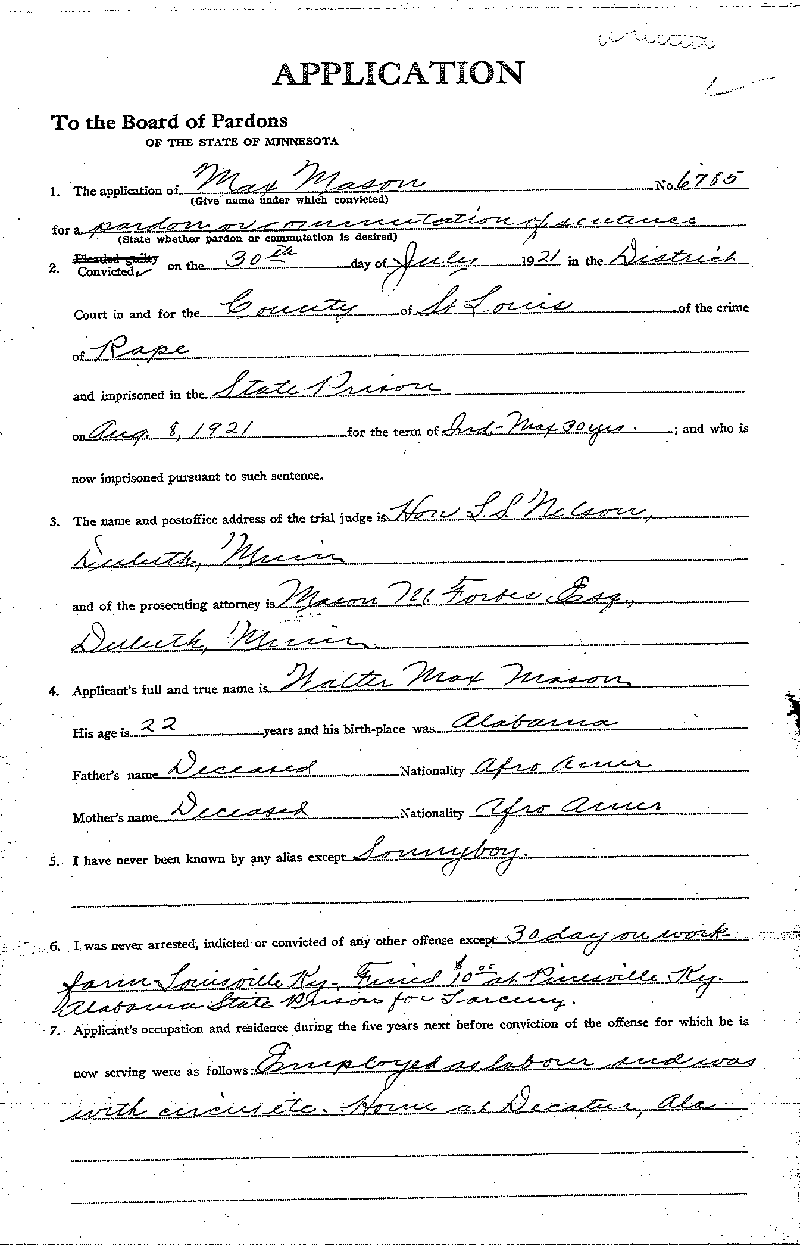 APPLICATION
To the Board of Pardons
OF THE STATE OF MINNESOTA
1. The application of Max Mason No. 6785
(Give name under which convicted)
for a pardon or commutation of sentance
(State whether pardon or commutation is desired)
2. Pleaded guilty
Convicted on the 30th day of July 1921 in the District
Court in and for the County of St Louis of the crime
of Rape
and imprisoned in the State Prison
on Aug. 8, 1921 for the term of Ind-Max 30 yrs. ; and who is
now imprisoned pursuant to such sentence.
3. The name and postoffice address of the trial judge is Hon L S Nelson,
Duluth, Minn
and of the prosecuting attorney is Mason M Forbes Esq,
Duluth, Minn.
4. Applicant's full and true name is Walter Max Mason
His age is 22 years and his birth-place was Alabama
Father's name Deceased Nationality Afro Amer
Mother's name Deceased Nationality Afro Amer
5. I have never been known by any alias except Sonnyboy.
6. I was never arrested, indicted or convicted of any other offense except 30 day on work
farm Louisville Ky. Fined $10.00 at Pinesville Ky.
Alabama State Prison for Larceny.
7. Applicant's occupation and residence during the five years next before conviction of the offense for which he is
now serving were as follows: Employed as labour and was
with circus etc. Home at Decatur, Ala